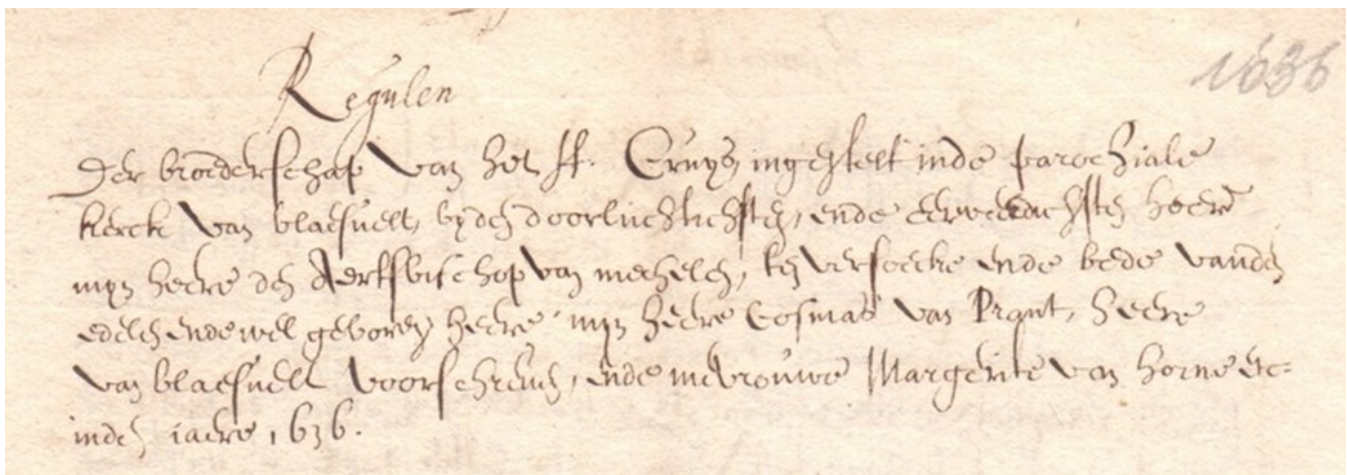 1636
Regulen
Der broederschap van het H. Cruys, ingestelt inde parochiale
kercke van blaesuelt, byden doorluchtichsten, ende eerweerdichsten heere
myn heere den Aertsbisschop van mechelen, ten versoecke ende bede vanden
edelen ende wel geboren heere myn heere Cosmas van Prant, heere
van blaesuelt voorschreuen, ende mevrouwe Margerite van horne etc=
inden iaere 1636.